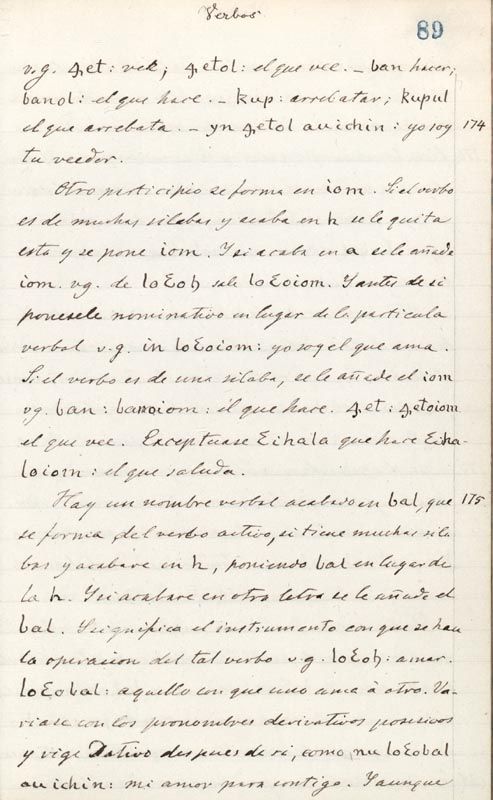 Verbos
89
v.g. ꜭet: vee; ꜭetol: el que vee. – ban hacer;
banol: el que hace. – kup: arrebatar; kupul
el que arrebata. – yn ꜭetol auichin: yo soy 174
tu veedor.
Otro participio se forma en iom. Si el verbo
es de muchas silabas y acaba en h se le quita
esta y se pone iom. Y si acaba en a se le añade
iom. vg. de loꜫoh sale loꜫoiom. Y antes de si
ponesele nominativo en lugar de la particula
verbal v.g. in loꜫoiom: yo soy el que ama.
Si el verbo es de una silaba, se le añade el iom
vg. ban: banoiom: el que hace. ꜭet: ꜭetoiom
el que vee. Exceptuase ꜫihala que hace ꜫiha-
loiom: el que saluda.
Hay un nombre verbal acabado en bal, que 175
se forma del verbo activo, si tiene muchas sila
bas y acabare en h, poniendo bal en lugar de
la h. Y si acabare en otra letra se le añade el
bal. Y significa el instrumento con que se hace
la operacion del tal verbo v.g. loꜫoh: amar.
loꜫobal: aquello con que uno ama à otro. Va-
riase con los pronombres derivativos posesivos
y rige Dativo despues de si, como, nu loꜫobal
auichin: mi amor para contigo. Y aunque